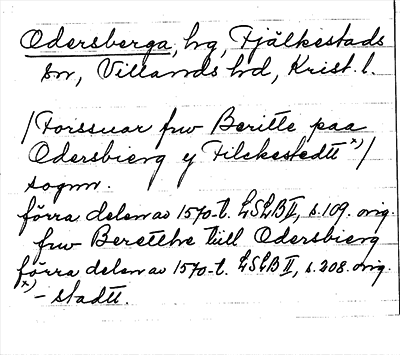 Odersberga, hg, Fjälkestads
sn, Villands hd, Krist. l.
/Forssuar frw Beritte paa
Odersbierg y Filckestedtt x)/
sognn.
förra delen av 1570-t. LSLB II, s. 109. orig.
frw Beretthe till Odersbierg
förra delen av 1570-t. LSLB II, s. 208. orig.
x) - stadtt.